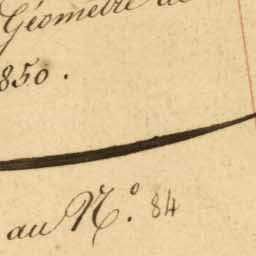 Géomètre
850.
au N.º 84